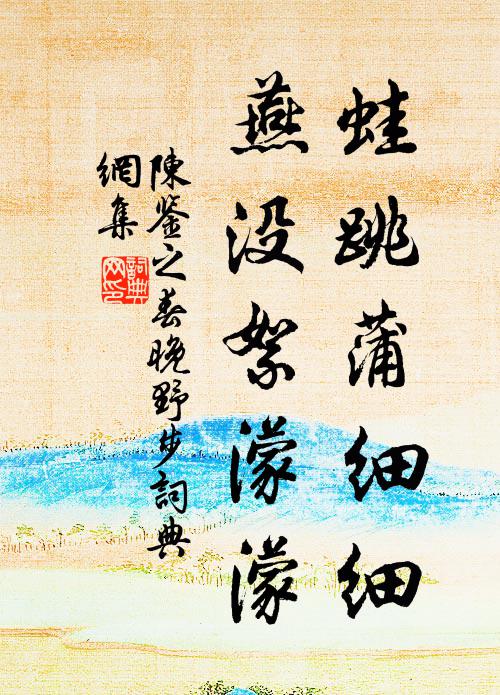 蛙跳蒲細細
燕没絮濛濛
陳鉴之春晚野步詞典
網集
詞典
网印